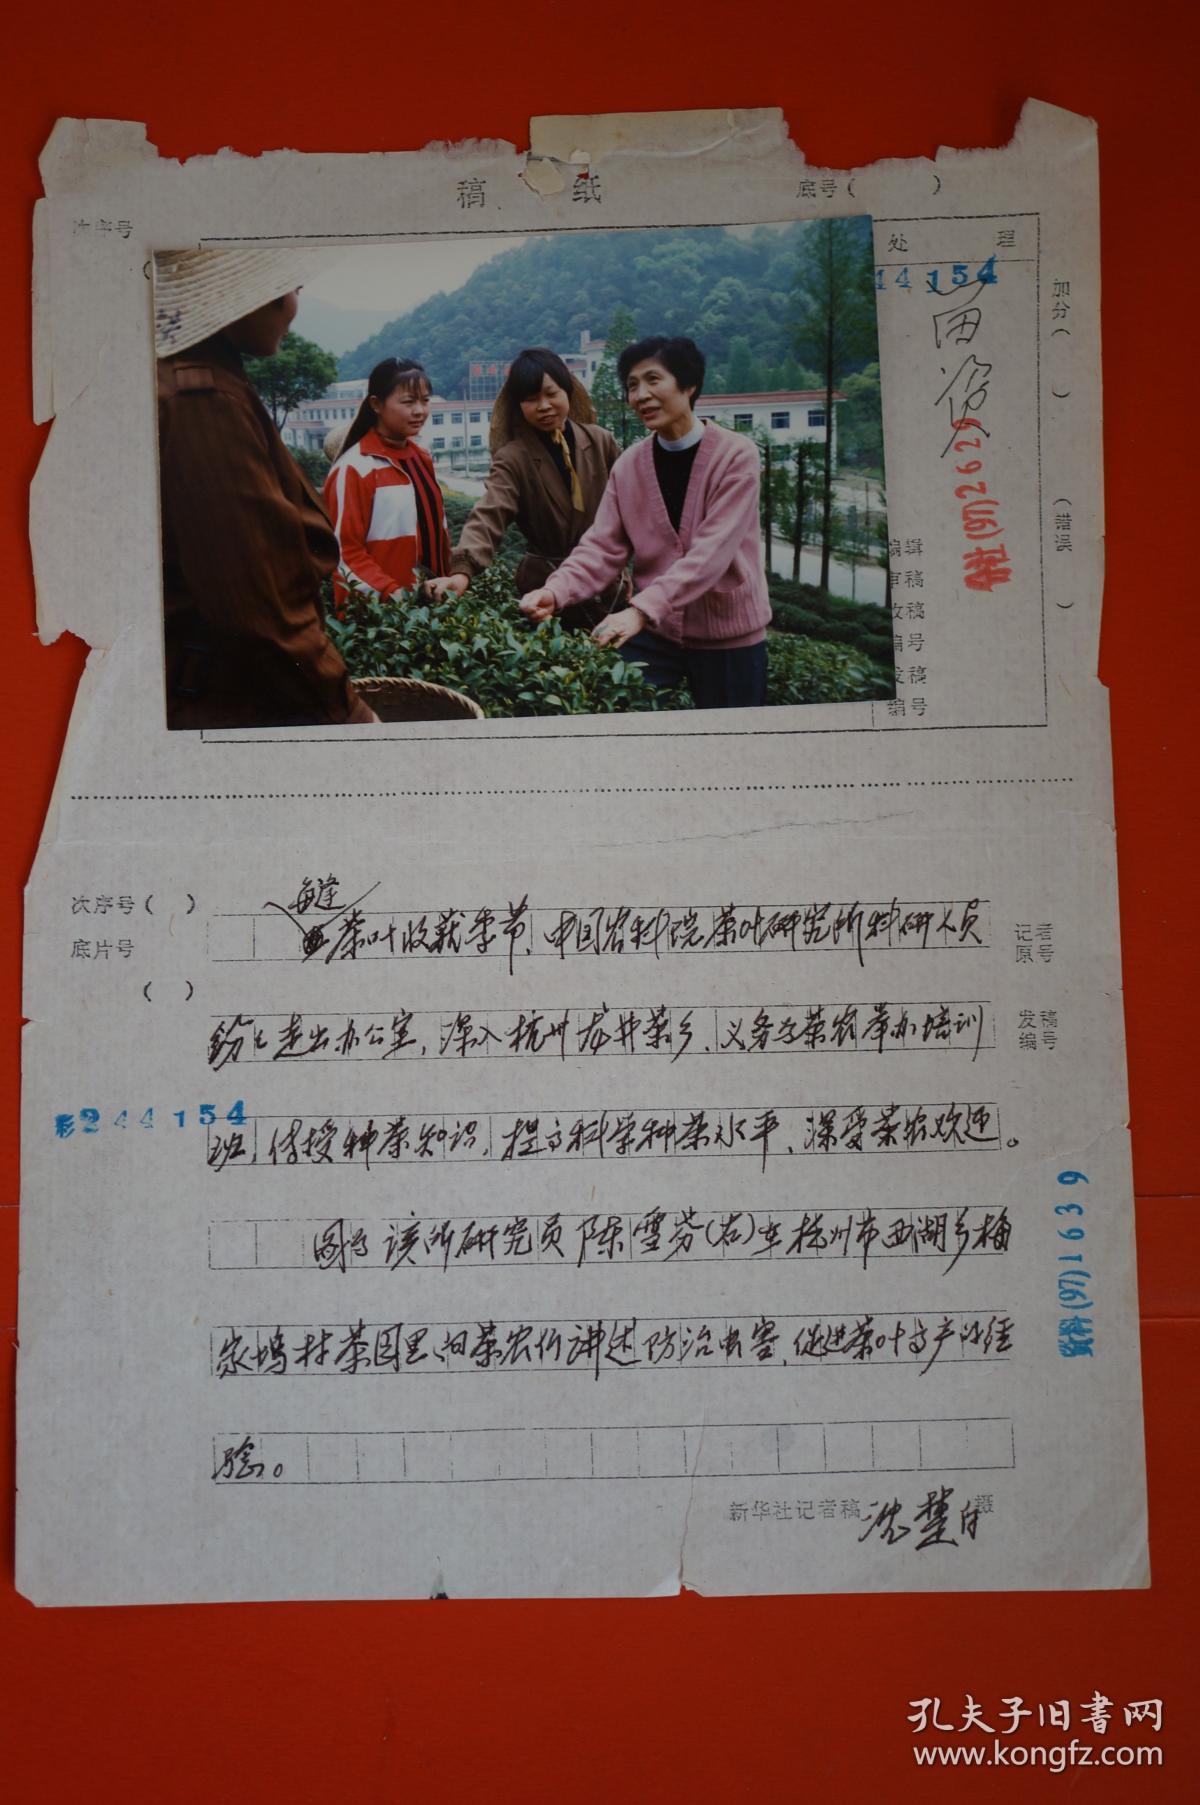 稿 纸
底号( )
次序号
(
处 理
44154
加分( )
(错误 )
留资
(97)2629
编辑
审稿
收稿
编号
发稿
编号
次序号( )
底片号
( )
记者
原号
发稿
编号
每逢
茶叶收获季节，中国农科院茶叶研究所科研人员
纷纷走出办公室，深入杭州龙井茶乡，义务为茶农举办培训
班，传授种茶知识，提高科学种茶水平，深受茶农欢迎。
图为该所研究员陈雪芬(右)在杭州市西湖乡梅
家坞村茶园里向茶农们讲述防治虫害，促进茶叶高产的经
验。
彩244154
资料(97)1639
新华社记者稿 沈 摄
孔夫子旧书网
www.kongfz.com